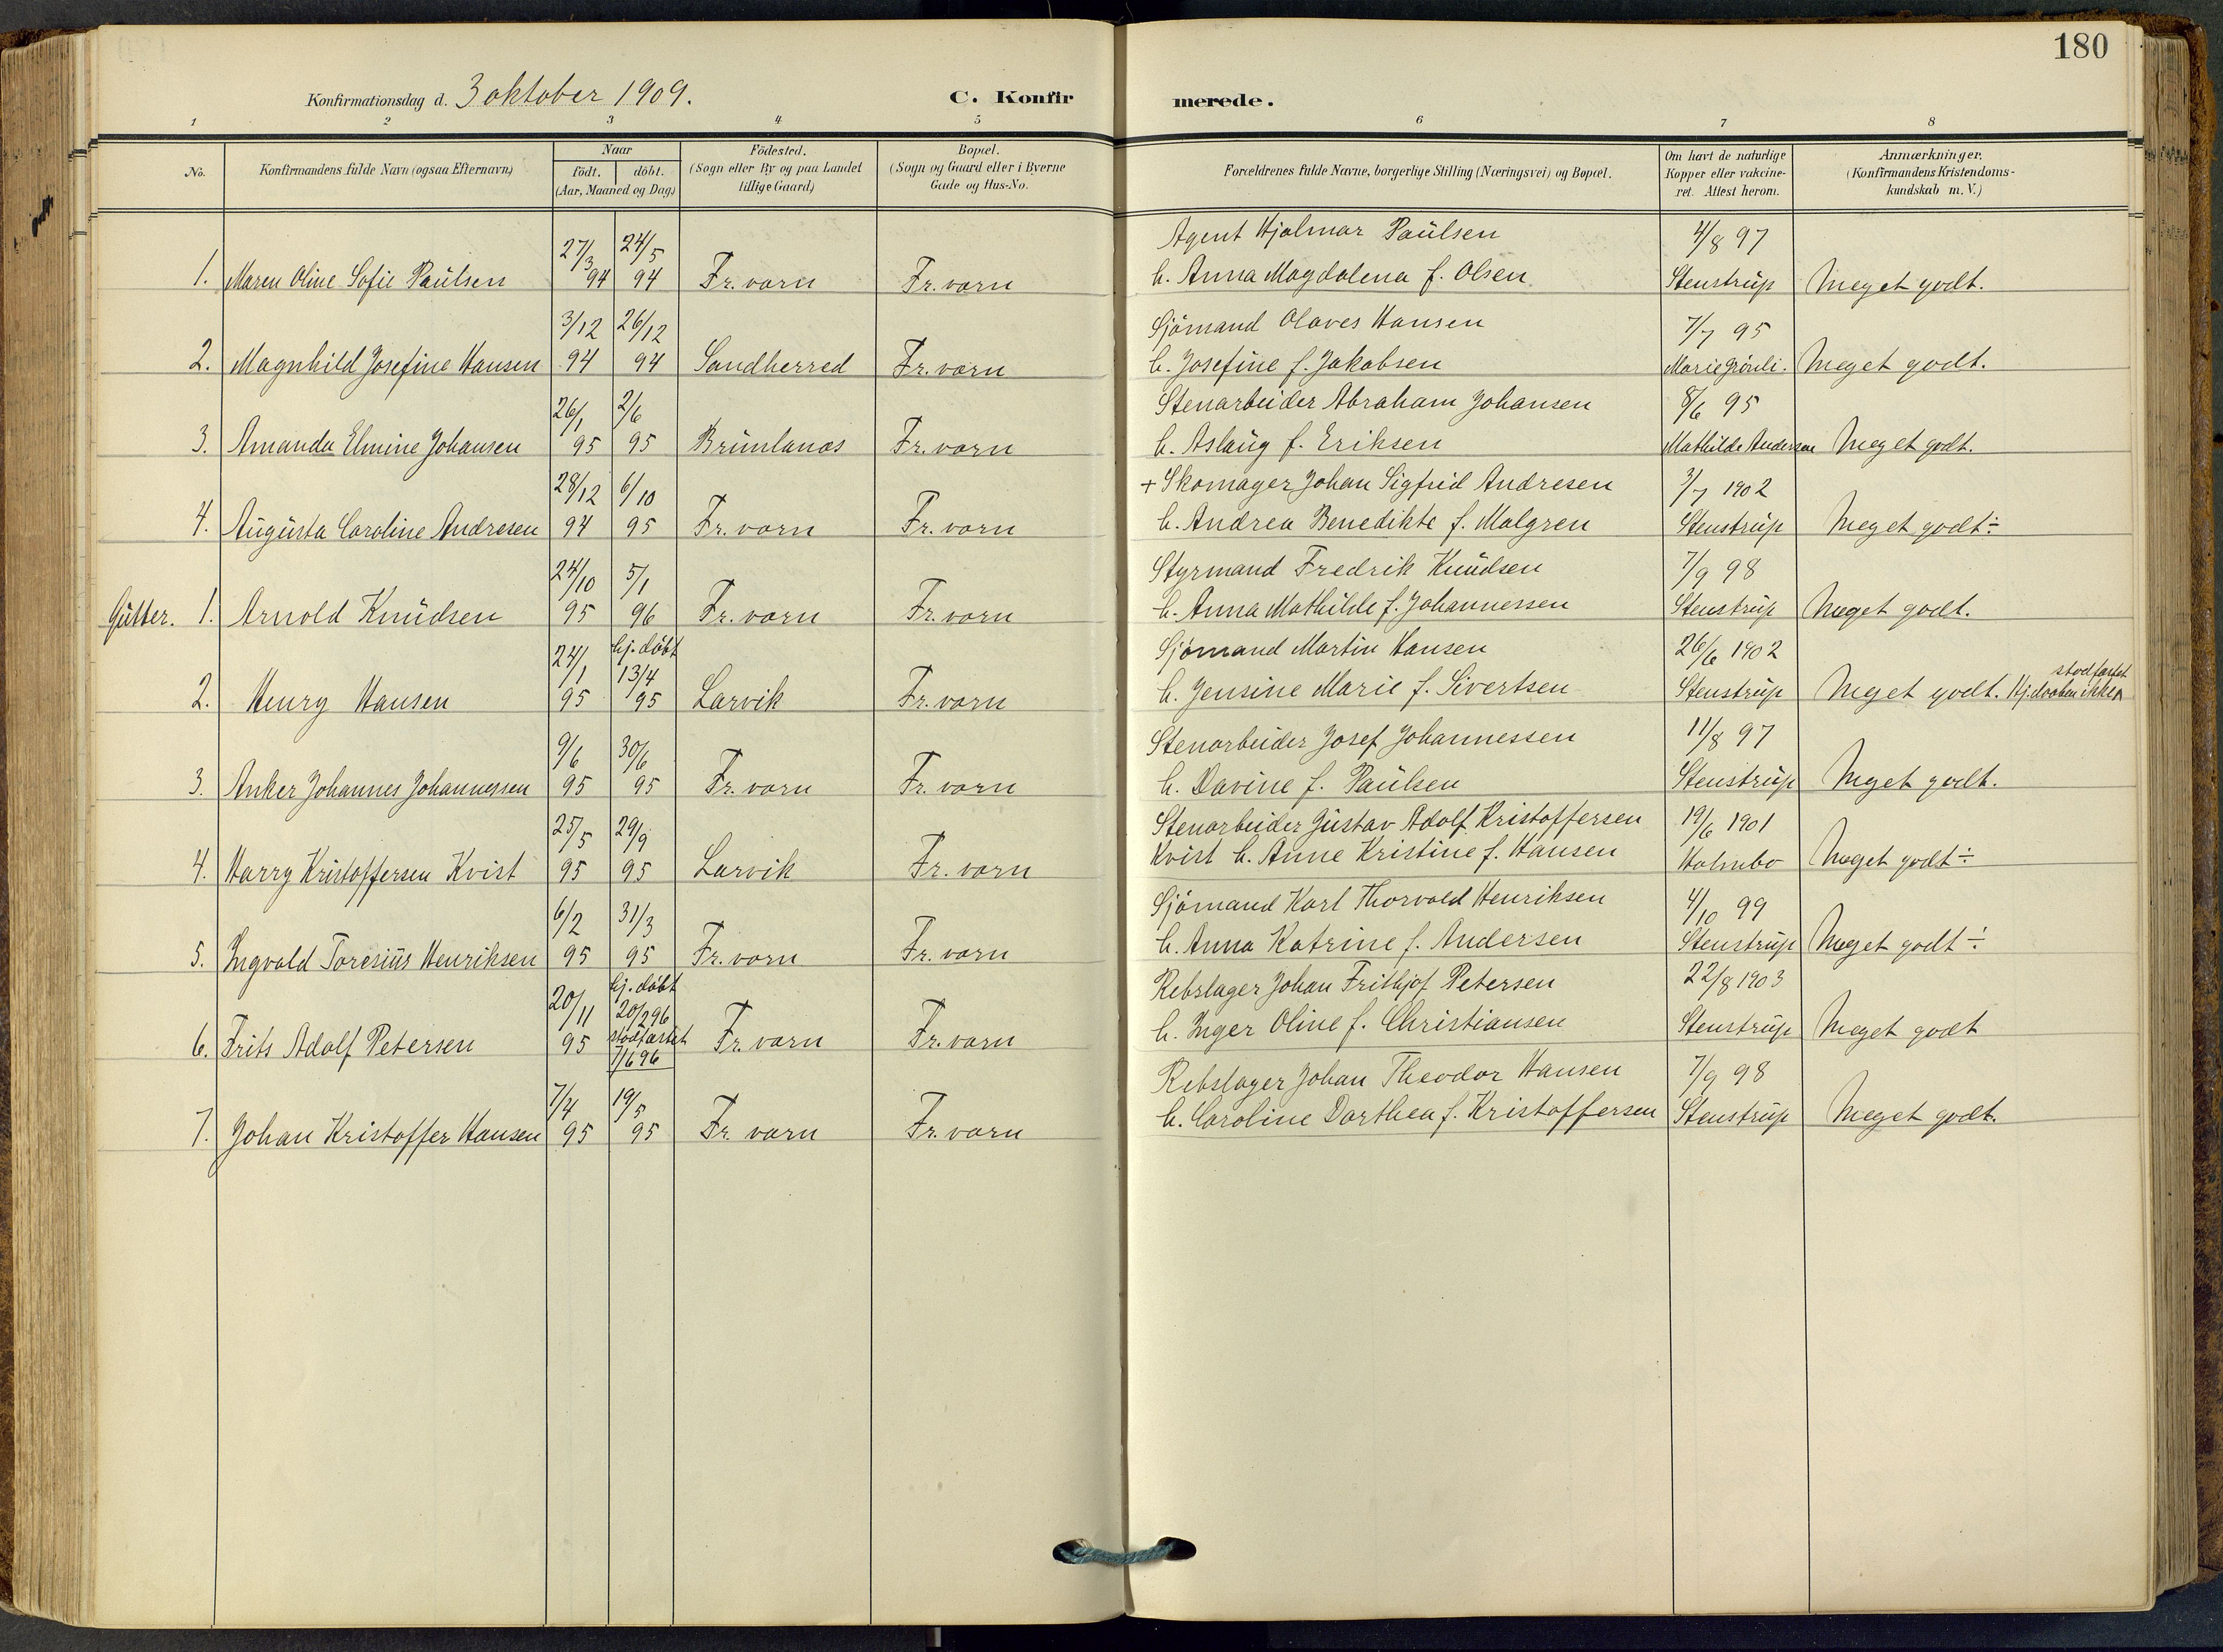 180
Konfirmationsdag d. 3 oktober 1909. C. Konfirmerede.
1 2 3 4 5 6 7 8
No. Konfirmandens fulde Navn (ogsaa Efternavn) Naar födt. döbt. (Aar, Maaned og Dag) Födested. (Sogn eller By og paa Landet tillige Gaard) Bopæl. (Sogn og Gaard eller i Byerne Gade og Hus-No. Forældrenes fulde Navne, borgerlige Stilling (Næringsvei) og Bopæl. Om havt de naturlige Kopper eller vakcineret. Attest herom. Anmærkninger. (Konfirmandens Kristendomskundskab m. V.)
27/3 24/5 Agent Hjalmar Paulsen 4/8 97
1. Maren Oline Sofie Paulsen 94 94 Fr. værn Fr. værn h. Anna Magdalena f. Olsen Stenstrup Meget godt.
3/12 26/12 Sjömand Olaves Hansen 7/7 95
2. Magnhild Josefine Hansen 94 94 Sandherred Fr. værn h. Josefine f. Jakobsen Marie Grönli. Meget godt.
26/1 2/6 Stenarbeider Abraham Johansen 8/6 95
3. Amanda Elmine Johansen 95 95 Brunlanæs Fr. værn h. Aslaug f. Eriksen Mathilde Andersen Meget godt.
28/12 6/10 + Skomager Johan Sigfrid Andresen 3/7 1902
4. Augusta Caroline Andresen 94 95 Fr. værn Fr. værn h. Andrea Benedikte f. Malgren Stenstrup Meget godt ÷
24/10 5/1 Styrmand Fredrik Knudsen 7/9 98
Gutter. 1. Arnold Knudsen 95 96 Fr. værn Fr. værn h. Anna Mathilde f. Johannessen Stenstrup Meget godt.
24/1 hj. döbt 13/4 Sjömand Martin Hansen 26/6 1902
2. Henry Hansen 95 95 Larvik Fr. værn h. Jensine Marie f. Sivertsen Stenstrup Meget godt. Hj. daaben ikke stadfæstet
9/6 30/6 Stenarbeider Josef Johannessen 11/8 97
3. Anker Johannes Johannessen 95 95 Fr. værn Fr. værn h. Davine f. Paulsen Stenstrup Meget godt.
25/5 29/9 Stenarbeider Gustav Adolf Kristoffersen 19/6 1901
4. Harry Kristoffersen Kvist 95 95 Larvik Fr. værn Kvist h. Anne Kristine f. Hansen Holmbo Meget godt ÷
6/2 31/3 Sjömand Karl Thorvald Henriksen 4/10 99
5. Ingvald Toresius Henriksen 95 95 Fr. værn Fr. værn h. Anna Katrine f. Andersen Stenstrup Meget godt ÷
20/11 hj. döbt 20/2 96 Rebslager Johan Frithjof Petersen 22/8 1903
6. Frits Adolf Petersen 95 stadfæstet 7/6 96 Fr. værn Fr. værn h. Inger Oline f. Christiansen Stenstrup Meget godt
7/4 19/5 Rebslager Johan Theodor Hansen 7/9 98
7. Johan Kristoffer Hansen 95 95 Fr. værn Fr. værn h. Caroline Dorthea f. Kristoffersen Stenstrup Meget godt.